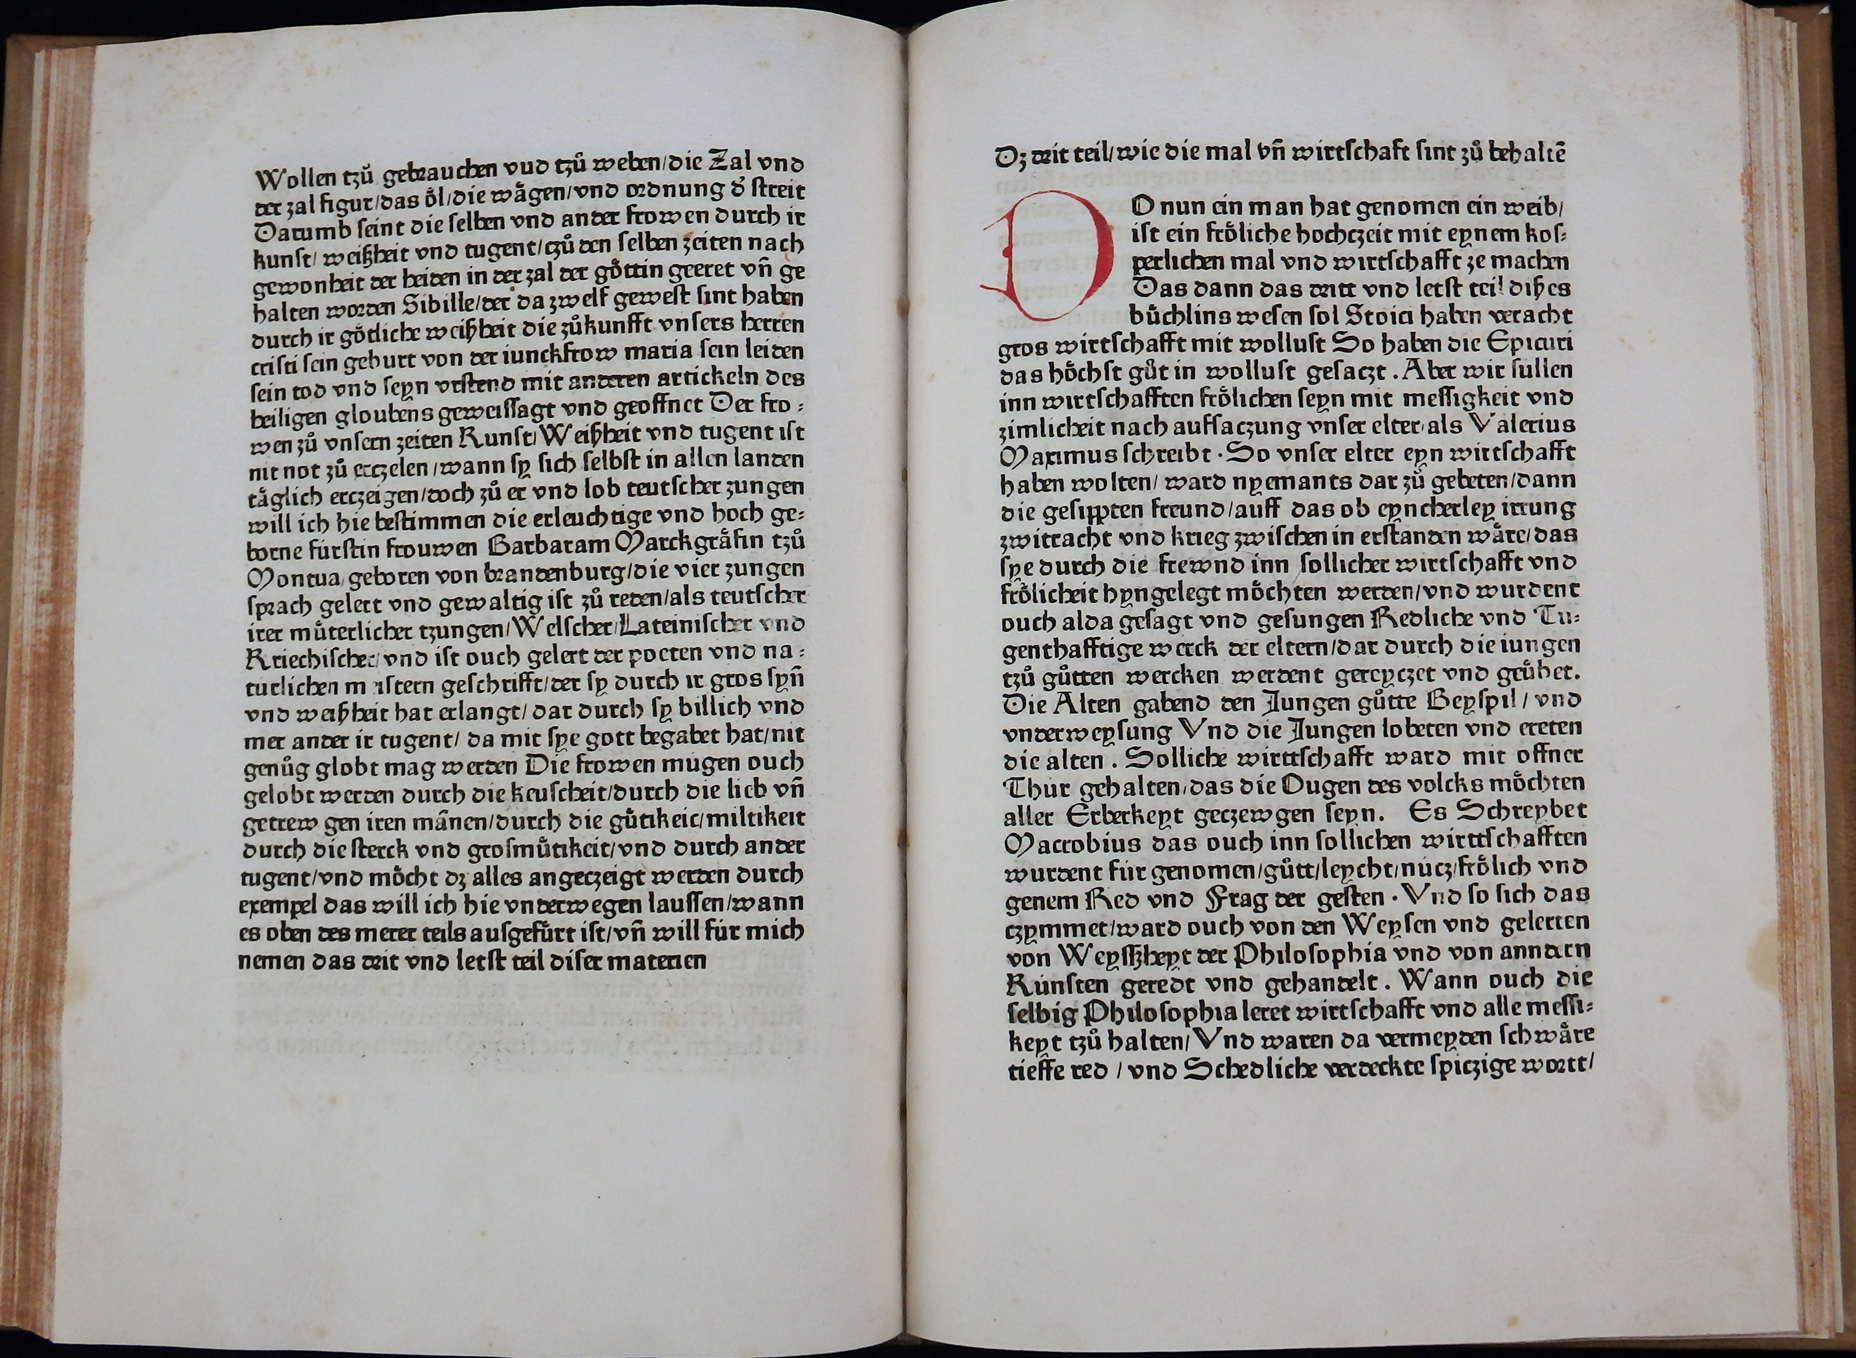 Wollen tzů gebrauchen vud tzů weben/die Zal vnd
der zal figur/das oͤl/die waͤgen/vnd ordnung dˀ streit
Darumb seint die selben vnd ander frowen durch ir
kunst/ weißheit vnd tugent/czů den selben zeiten nach
gewonheit der heiden in der zal der goͤttin geeret vn̄ ge
halten worden Sibille/der da zwelf gewest sint haben
durch ir goͤtliche weißheit die zůkunfft vnsers herren
cristi sein geburt von der iunckfrow maria sein leiden
sein tod vnd seyn vrstend mit anderen artickeln des
heiligen gloubens geweissagt vnd geoffnet Der fro⸗
wen zů vnsern zeiten Kunst/Weißheit vnd tugent ist
nit not zů erczelen/wann sy sich selbst in allen landen
taͤglich erczeigen/doch zů er vnd lob teutscher zungen
will ich hie bestimmen die erleuchtige vnd hoch ge⸗
borne fürstin frouwen Barbaram Marckgraͤfin tzů
Montua/geboren von brandenburg/die vier zungen
sprach gelert vnd gewaltig ist zů reden/als teutscher
irer můterlicher tzungen/Welscher/Lateinischer vnd
Kriechischer/vnd ist ouch gelert der poeten vnd na⸗
turlichen meistern geschrifft/der sy durch ir gros syn̄
vnd weißheit hat erlangt/dar durch sy billich vnd
mer ander ir tugent/ da mit sye gott begabet hat/nit
genůg globt mag werden Die frowen mugen ouch
gelobt werden durch die keuscheit/durch die lieb vn̄
getrew gen iren mānen/durch die gůtikeit/miltikeit
durch die sterck vnd grosmůtikeit/vnd durch ander
tugent/vnd moͤcht dz alles angeczeigt werden durch
exempel das will ich hie vnderwegen laussen/wann
es oben des merer teils ausgefürt ist/vn̄ will für mich
nemen das drit vnd letst teil diser materien
Dz drit teil/wie die mal vn̄ wirtschaft sint zů behaltē
DO nun ein man hat genomen ein weib/
ist ein froͤliche hochczeit mit eynem kos⸗
perlichen mal vnd wirtschafft ze machen
Das dann das dritt vnd letst teil dißes
büchlins wesen sol Stoici haben veracht
gros wirtschafft mit wollust So haben die Epicuri
das hoͤchst gůt in wollust gesaczt . Aber wir sullen
inn wirtschafften froͤlichen seyn mit messigkeit vnd
zimlicheit nach auffsaczung vnser elter/als Valerius
Maximus schreibt · So vnser elter eyn wirtschafft
haben wolten/ ward nyemants dar zů gebeten/dann
die gesippten freund/auff das ob eyncherley irrung
zwitracht vnd krieg zwischen in erstanden waͤre/das
sye durch die frewnd inn sollicher wirtschafft vnd
froͤlicheit hyngelegt moͤchten werden/vnd wurdent
ouch alda gesagt vnd gesungen Redliche vnd Tu⸗
genthafftige werck der eltern/dar durch die iungen
tzů gůtten wercken werdent gereyczet vnd geübet.
Die Alten gabend den Jungen gůtte Beyspil/ vnd
vnderweysung Vnd die Jungen lobeten vnd ereten
die alten . Solliche wirttschafft ward mit offner
Thür gehalten/das die Ougen des volcks moͤchten
aller Erberkeyt geczewgen seyn. Es Schreybet
Macrobius das ouch inn sollichen wirttschafften
wurdent für genomen/gůtt/leycht/nücz/froͤlich vnd
genem Red vnd Frag der gesten · Vnd so sich das
czymmet/ward ouch von den Weysen vnd gelerten
von Weyßheyt der Philosophia vnd von anndern
Künsten geredt vnd gehandelt . Wann ouch die
selbig Philosophia leret wirtschafft vnd alle messi⸗
keyt tzů halten/ Vnd waren da vermeyden schwaͤre
tieffe red / vnd Schedliche verdeckte spiczige wortt/